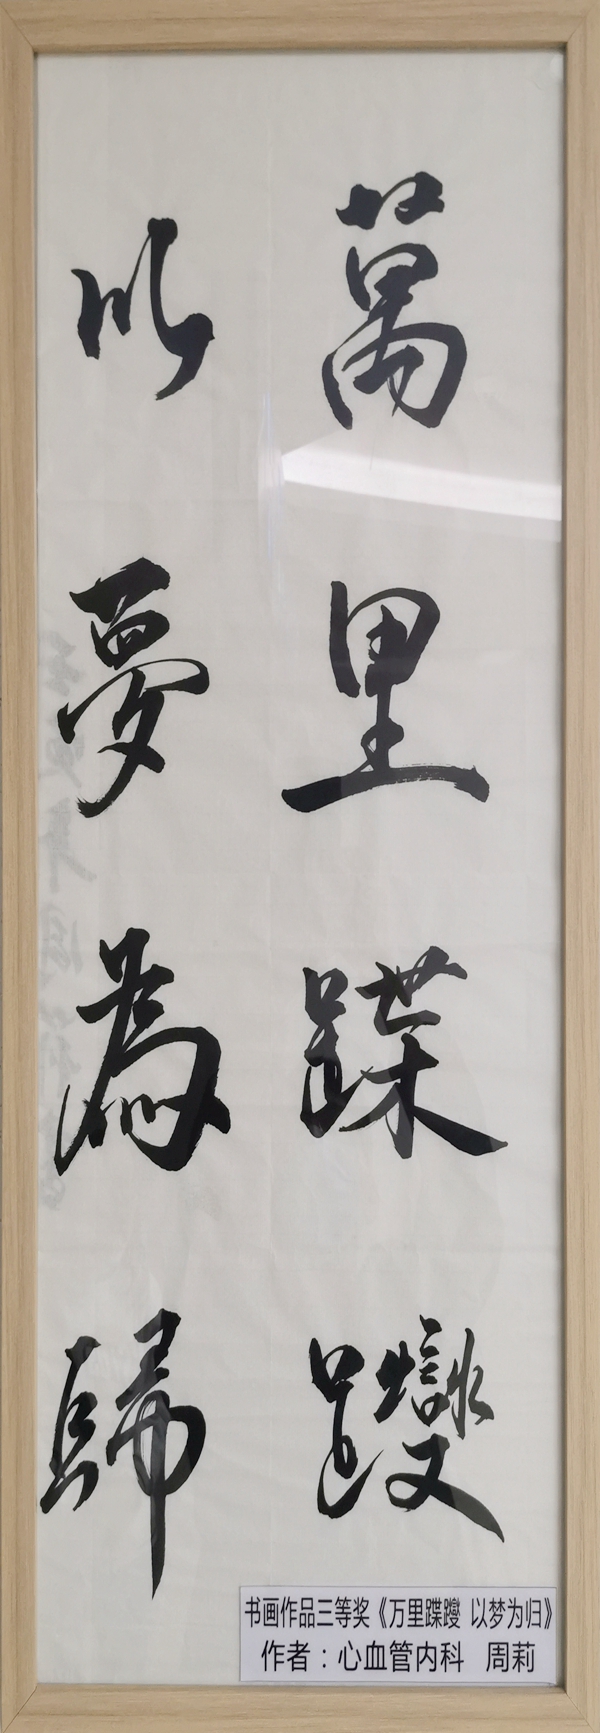 萬里蹀躞
以夢為歸
书画作品三等奖《万里蹀躞 以梦为归》
作者：心血管内科 周莉